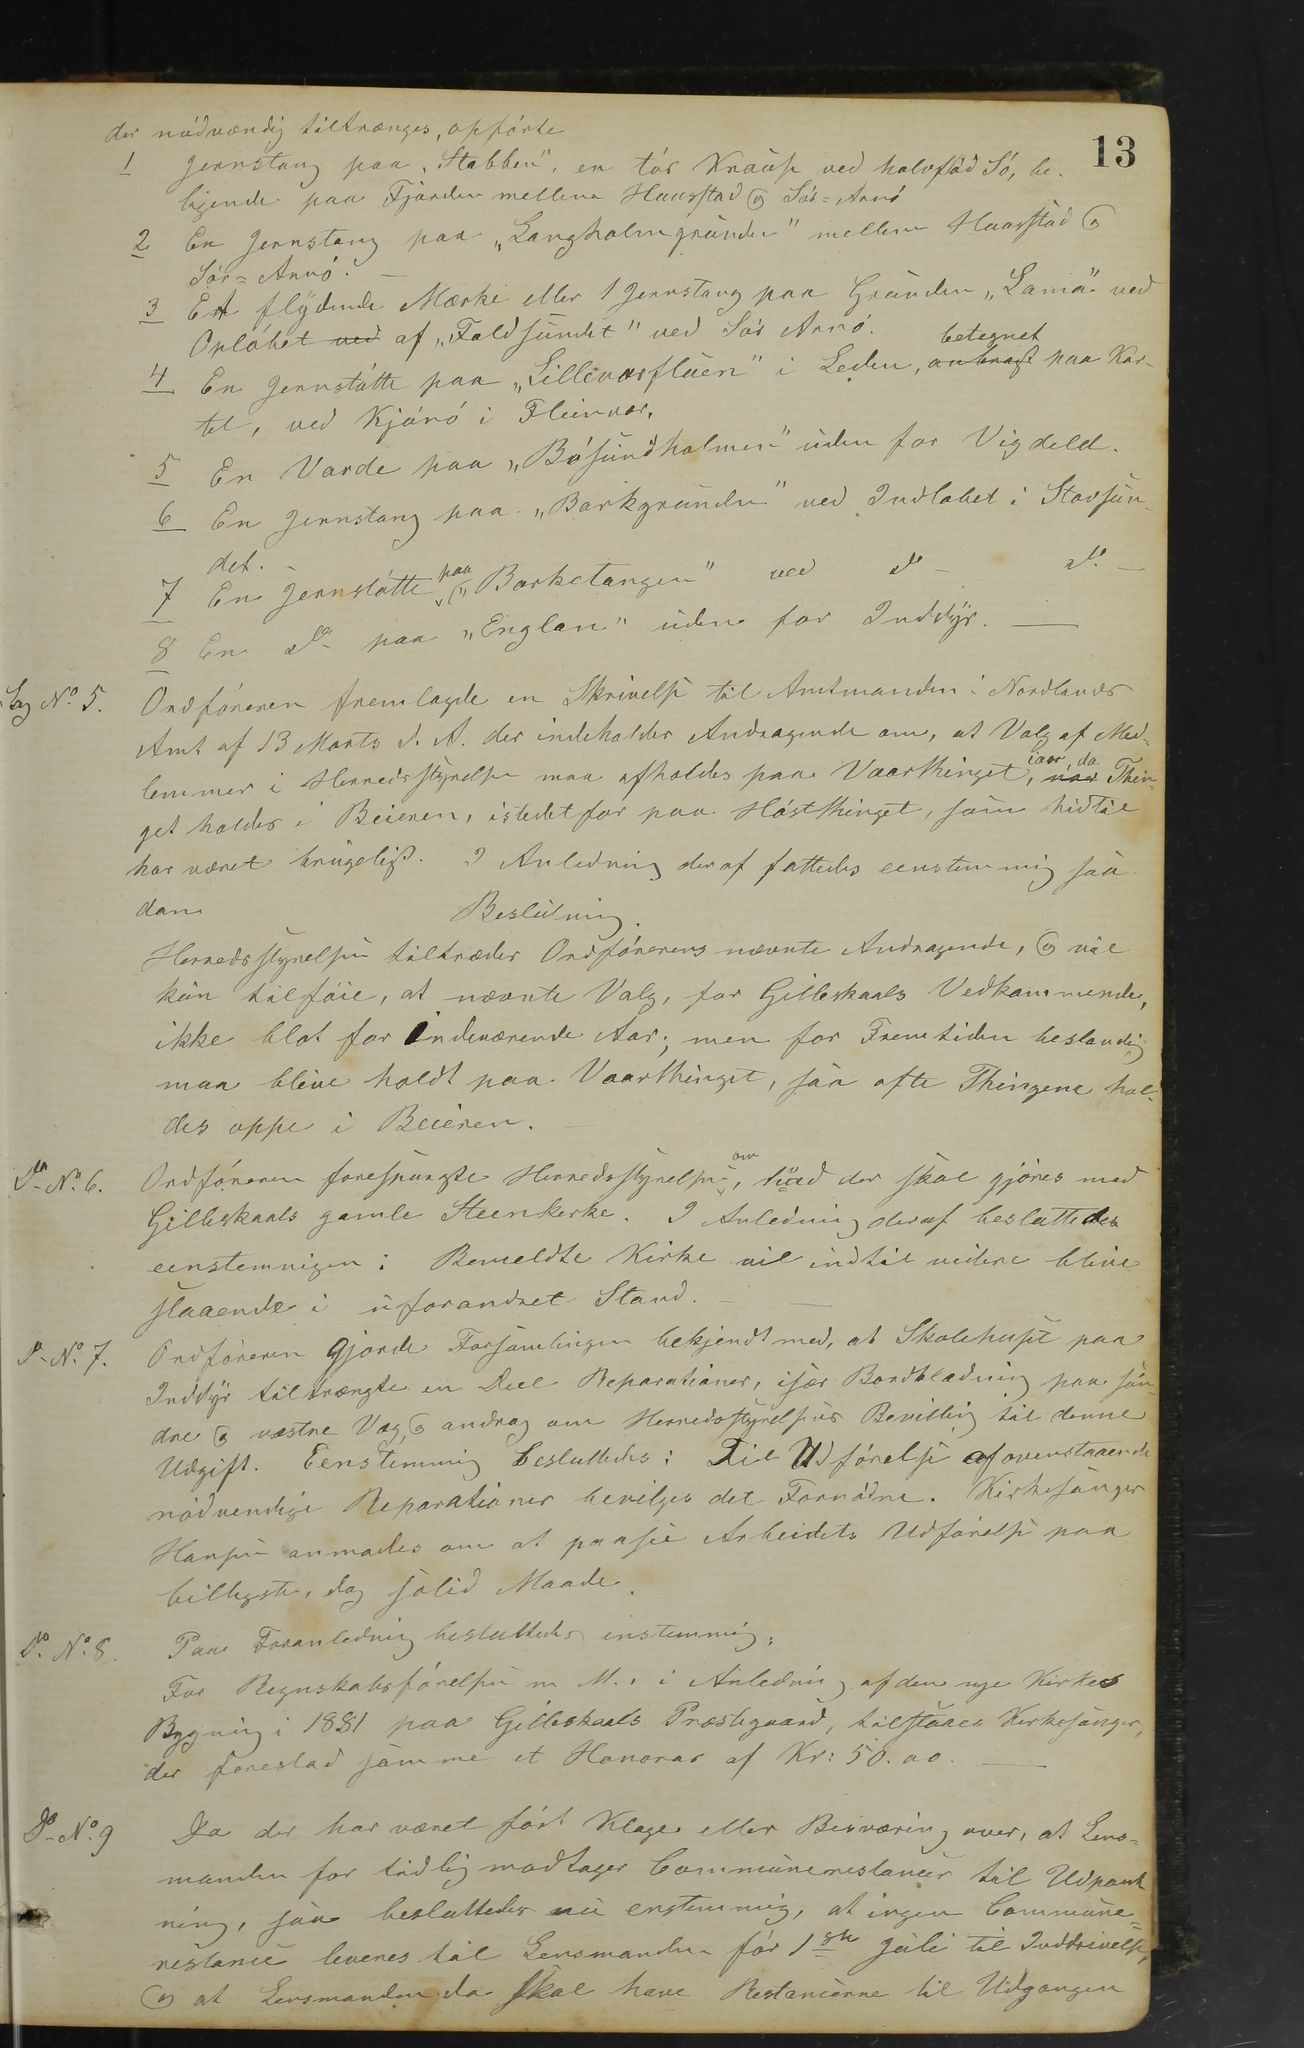 13
der nödvændig tiltrænges, opförte
1 Jernstang paa „Stabben", en tör Knause ved halvflöd Sö, be-
ligende paa Fjorden mellem Haasstad og Sör=Arnö
2 En Jernstang paa „Langholmgrunden" mellem Haasstad og
Sör=Arnö. —
3 Et flydende Mærke eller 1 Jernstang paa Grunden „Lama" ved
Opløbet ved af „Foldsundet" ved Sör Arnö.
betegnet
4 En Jernstötte paa „Lillevarsflüen" i Leden, anbragt paa Kar-
tet, ved Kjönö i Fleinvær.
5 En Varde paa „Bösundholmen" uden for Vigdeld.
6 En Jernstang paa „Barkgrunden" ved Indlobet i Storsün-
det. —
7 En Jernstötte paa „Barketangen" ved do — do —
8 En do paa „Englan" uden for Inddyr. —
Sag No. 5. Ordföreren fremlagde en Skrivelse til Amtmanden i Nordlands
Amt af 13 Marts d. A. der indeholder Andragende om, at Valg af Med-
lemmer i Herredsstyrelsen maa afholdes paa Vaarthinget, naar iaar, da Thin-
get holdes i Beieren, istedetfor paa Høstthinget, som hidtil
har været brugeligt. I Anledning deraf fattedes eenstemmig saa
dan
Beslutning.
Herredsstyrelsen tiltræder Ordförerens nævnte Andragende, og vil
kun tilföie, at nævnte Valg, for Gilleskaals Vedkommende,
ikke blot for indeværende Aar; men for Fremtiden bestandig
maa blive holdt paa Vaarthinget, saa ofte Thingene hol-
des oppe i Beieren. —
Do No. 6. Ordföreren forespurgte Herredsstyrelsen, om hvad der skal gjöres med
Gilleskaals gamle Steenkirke. I Anledning deraf besluttedes
eenstemmigen: Bemeldte Kirke vil indtil videre blive
staaende i uforandret Stand. —
Do No. 7. Ordföreren gjorde Forsamlingen bekjendt med, at Skolehuset paa
Inddyr tiltrængte en Deel Reparationer, især Bordklædning paa sön-
dre og vestre Væg, og andrag om Herredsstyrelsens Bevilling til denne
Udgift. Eenstemmig besluttedes: Til Udförelse af ovenstaaende
nödvendige Reparationer bevilges det Fornödne. Kirkesanger
Hansen anmodes om at paasee Arbeidets Udförelse paa
billigste, dog solid Maade.
Do No. 8. Paa Foranledning besluttedes enstemmig:
For Regnskabsförelsen m. M. i Anledning af den nye Kirkes
Bygning i 1881 paa Gilleskaals Præstegaard, tilstaaes Kirkesanger,
der forestod samme et Honorar af Kr: 50.00. —
Do No. 9 Da der har været fört Klage eller Besværing over, at Lens-
manden for tidlig modtager Communerestancer til Udpant
ning, saa besluttedes nu enstemmig, at ingen Commune-
restance leveres til Lensmanden för 1ste Juli til Inddrivelse,
og at Lensmanden da skal have Restancerne til Udgangen